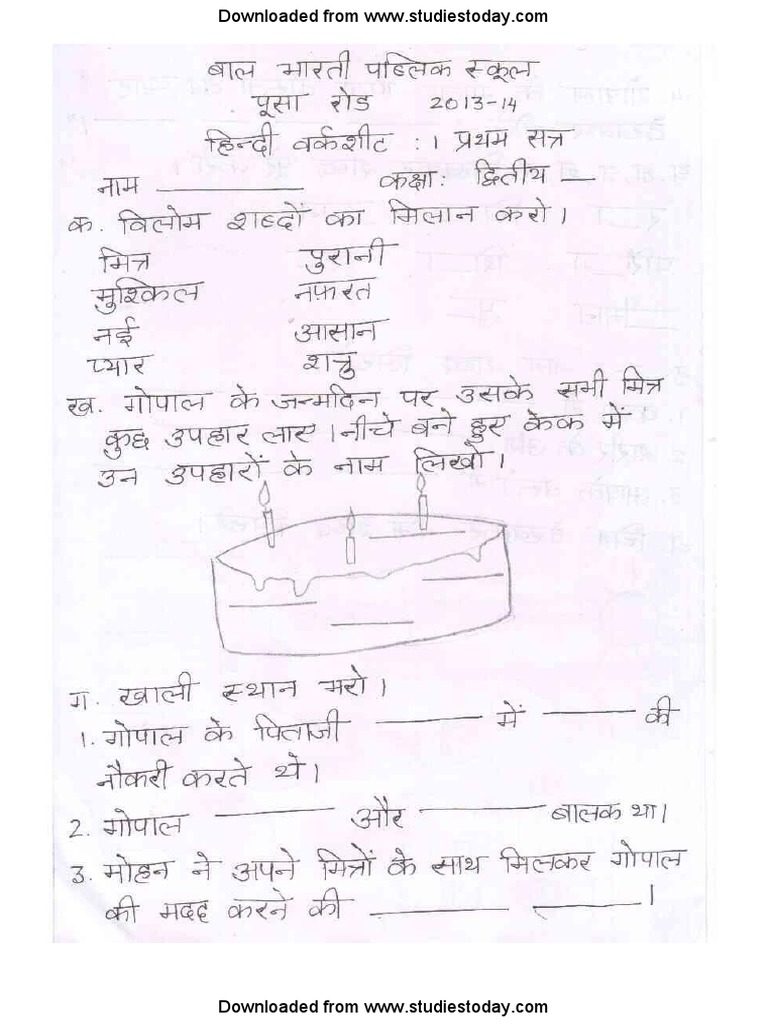 Downloaded from www.studiestoday.com
बाल भारती पब्लिक स्कूल
पूसा रोड 2013-14
हिन्दी वर्कशीट : 1 प्रथम सत्र
नाम __________ कक्षा: द्वितीय __
क. विलोम शब्दों का मिलान करो।
मित्र पुरानी
मुश्किल नफ़रत
नई आसान
प्यार शत्रु
ख. गोपाल के जन्मदिन पर उसके सभी मित्र
कुछ उपहार लाए। नीचे बने हुए केक में
उन उपहारों के नाम लिखो।
ग. खाली स्थान भरो।
1. गोपाल के पिताजी _______ में ______ की
नौकरी करते थे।
2. गोपाल ________ और ________ बालक था।
3. मोहन ने अपने मित्रों के साथ मिलकर गोपाल
की मदद करने की _______ _______।
Downloaded from www.studiestoday.com